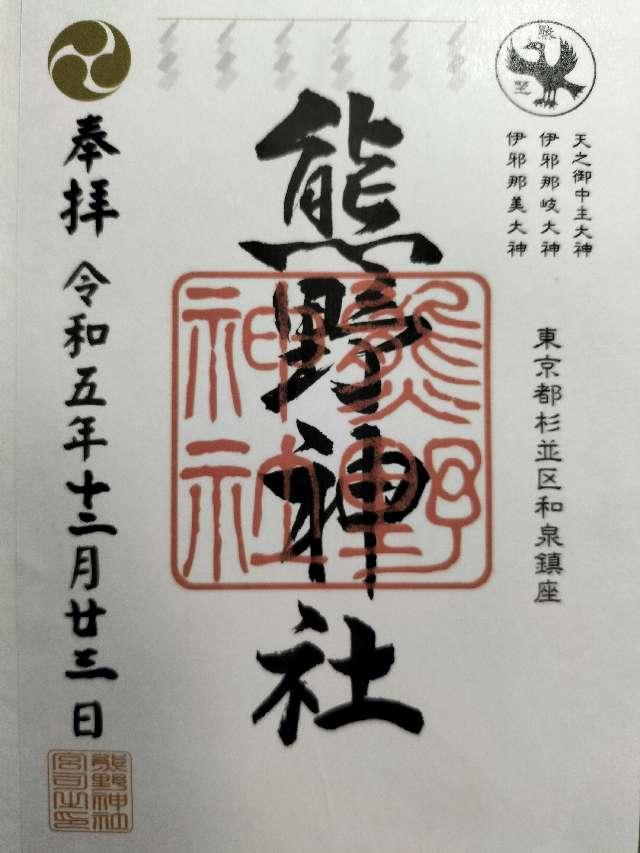 天之御中主大神
伊邪那岐大神
伊邪那美大神
東京都杉並区和泉鎮座
熊野神社
熊野
神社
奉拝
令和五年十二月廿三日
熊野神社
宮司之印